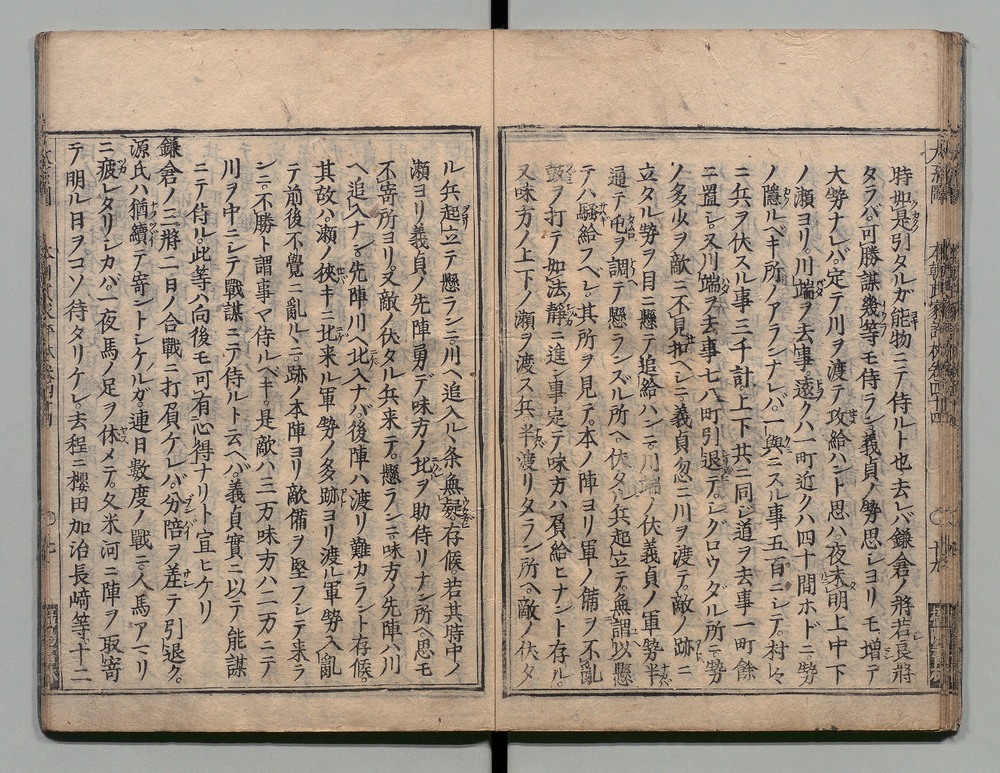 時如是引タルガ能物ニテ侍ルト也去レバ鎌倉ノ將若良將
タラバ可勝謀幾等モ侍ラン義貞ノ勢思シヨリモ増テ
大勢ナレバ定テ川ヲ渡テ攻給ハント思ハ夜未明上中下
ノ瀬ヨリ川端ヲ去事遠クハ一町近クハ四十間ホドニ勢
ノ隱ルベキ所ノアランナレバ一與ニスル事五百ニシテ村々
ニ兵ヲ伏スル事三千計上下共ニ同シ道ヲ去事一町餘
ニ置シ又川端ヲ去事七八町引退テシグロウタル所ニ勢
ノ多少ヲ敵ニ不見扣ヘシ義貞忽ニ川ヲ渡テ敵ノ跡ニ
立タル勢ヲ目ニ懸テ追給ハンニ川端ノ伏義貞ノ軍勢半
通テ屯ヲ調テ懸ランズル所ヘ伏タル兵起立テ無謂以懸
テハ騒給フヘシ其所ヲ見テ本ノ陣ヨリ軍ノ備ヲ不亂
鼓ヲ打テ如法静ニ進事定テ味方ハ負給ヒナント存ル
又味方ノ上下ノ瀬ヲ渡ス兵半渡リタラン所ヘ敵ノ伏タ
ル兵起立テ懸ランニ川ヘ追入ル条無疑存候若其時中ノ
瀬ヨリ義貞ノ先陣勇デ味方ノ北ヲ助侍リナン所ヘ思モ
不寄所ヨリ又敵ノ伏タル兵来テ懸ランニ味方ノ先陣ハ川
ヘ追入ナン先陣川ヘ北入ナバ後陣ハ渡リ難カラント存候
其故ハ瀬ノ狹キニ北来ル軍勢ノ多跡ヨリ渡ル軍勢入亂
テ前後不覺ニ亂ルニ跡ノ本陣ヨリ敵備ヲ堅フシテ来ラ
ンニ不勝ト謂事ヤ侍ルベキ是敵ハ三万味方ハ二万ニテ
川ヲ中ニシテ戰謀ニテ侍ルト云ヘバ義貞實ニ以テ能謀
ニテ侍ル此等ハ向後モ可有心得ナリト宣ヒケリ
鎌倉ノ三將二日ノ合戰ニ打負ケレバ分陪ヲ差テ引退ク
源氏ハ猶續テ寄ントシケルガ連日数度ノ戰ニ人馬アマリ
ニ疲レタリシカバ一夜馬ノ足ヲ休メテ久米河ニ陣ヲ取寄
テ明ル日ヲコソ待タリケレ去程ニ櫻田加治長﨑等十二